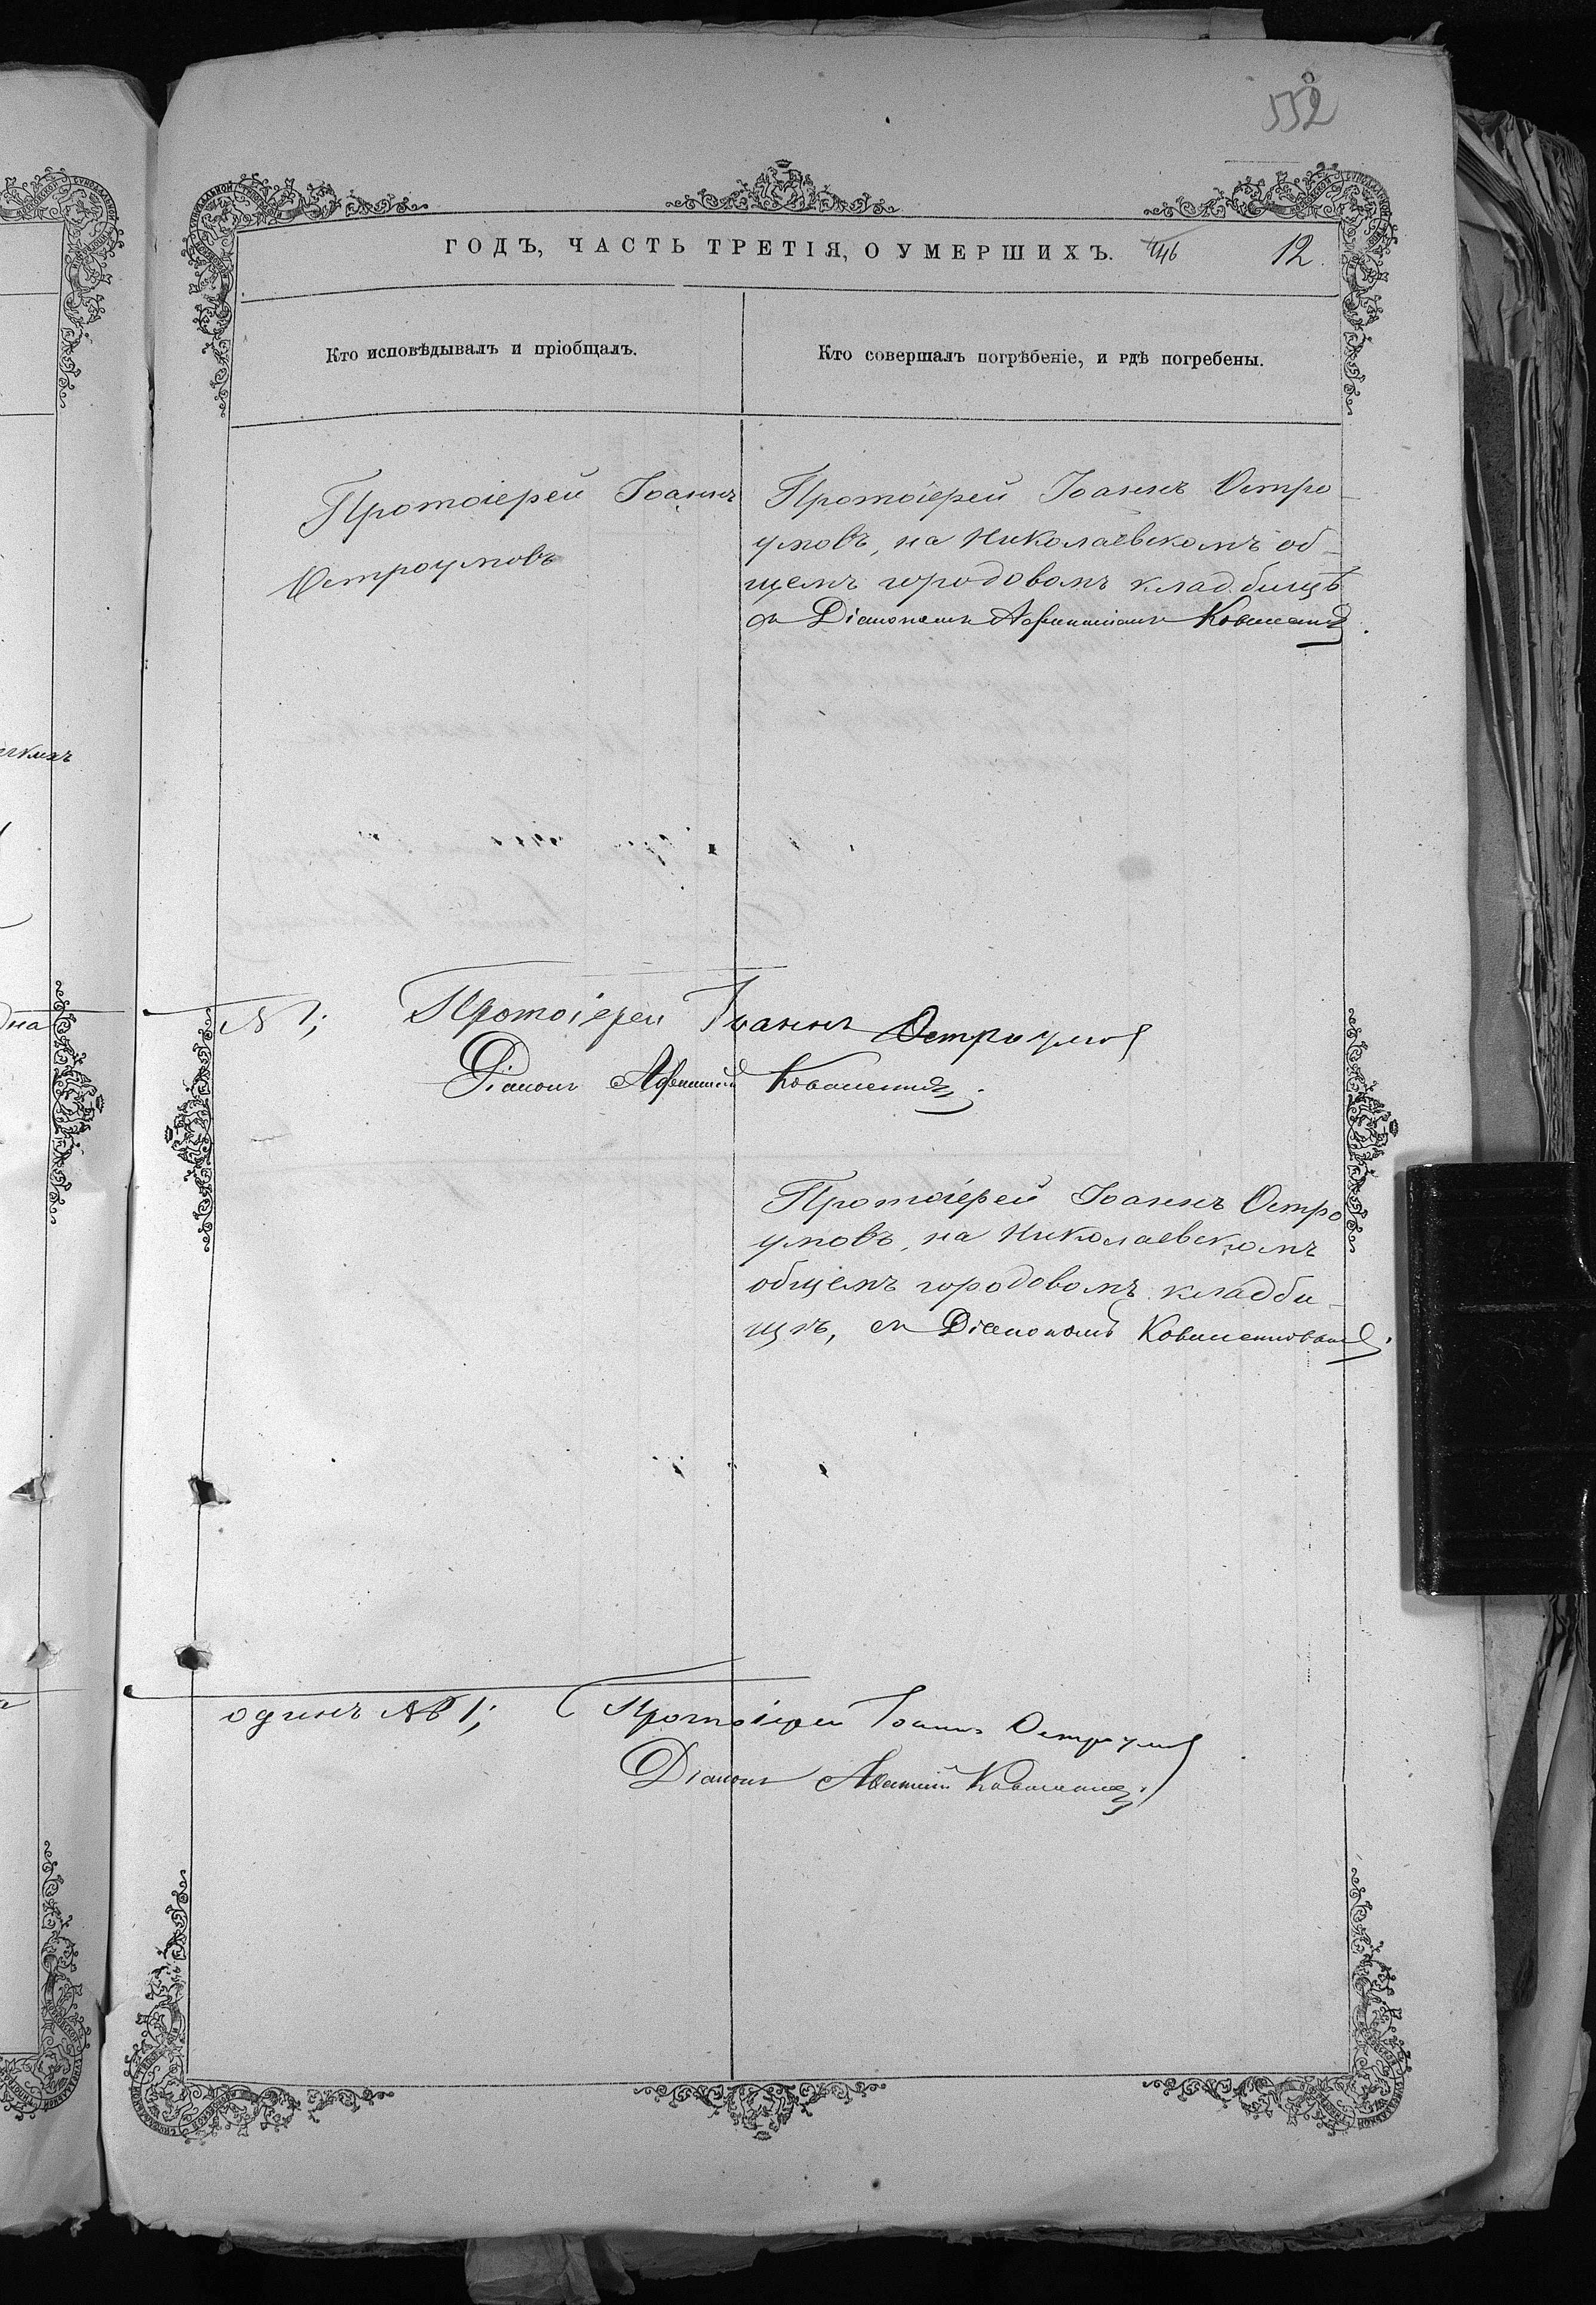 552
ГОДЪ, ЧАСТЬ ТРЕТІЯ, О УМЕРШИХЪ. 12.
Кто исповѣдывалъ и пріобщалъ.
Кто совершалъ погрѣбеніе, и гдѣ погребены.
Протоіерей Іоаннъ
Остроумовъ
Протоіерей Іоаннъ Остро
умовъ, на Николаевскомъ об-
щемъ городовомъ кладбищѣ
съ Діакономъ
дна
N 1;
Протоіерей Іоаннъ Остроумов
Діаконъ
Протоіерей Іоаннъ Остро
умовъ, на Николаевскомъ
общемъ городовомъ кладби-
щѣ, съ Діакономъ
одинъ № 1;
Протоіерей Іоаннъ Остроумов
Діаконъ